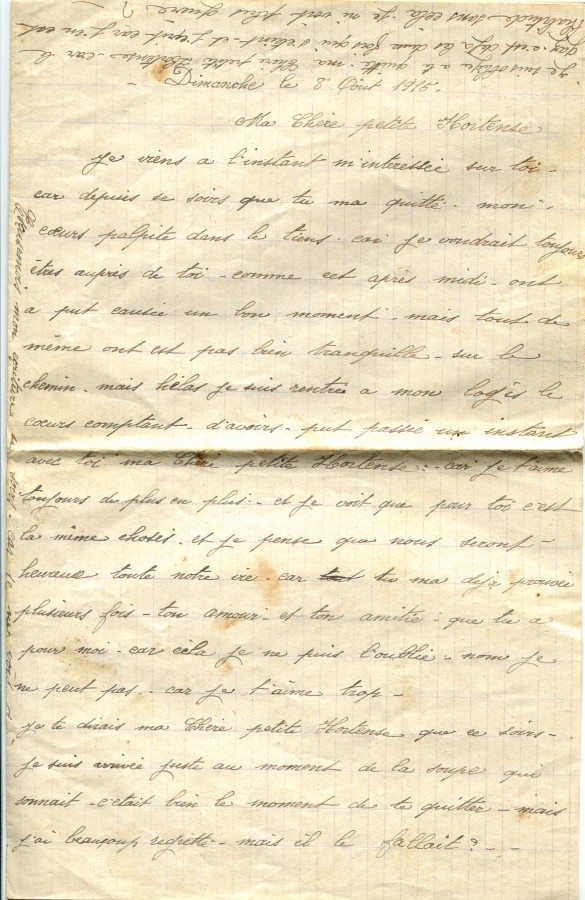 - Dimanche le 8 Août 1915 -
Ma Chère petite Hortense
Je viens a l'instant m'interessée sur toi -
car depuis se soirs que tu ma quitté . mon -
cœurs palpite dans le tiens . cai je voudrait toujours
êtres auprès de toi - comme cet après midi - ont
a put causée un bon moment - mais tout de
même ont est pas bien tranquille - sur le
chemin . mais hélas je suis rentrée a mon logis le
cœurs comptant - d'avoirs - put passée un instant
avec toi ma Chère petite Hortense - car je t'aime
toujours de plus en plus - et je voit que pour toi c'est
la même choses . et je pense que nous seront -
heureuse toute notre vie - car tu ma deja prouvée
plusieurs fois - ton amour - et ton amitié - que tu a
pour moi - car cèla je ne puis l'oublie - nom je
ne peut pas - car je t'aime trop -
je te dirais ma Chère petite Hortense que ce soirs -
je suis arrivée juste au moment de la soupe qui
sonnait - c'était bien le moment de te quitter - mais
j'ai beaucoup regretté - mais il le fallait ? - -
je suis obligé a te quitté ma Chère petite Hortense - car le
gaz - c'est deja la fois qui s'éteint - et j'écrit car j'en est
l'habitude - sans cela je ni voit plus guère ?